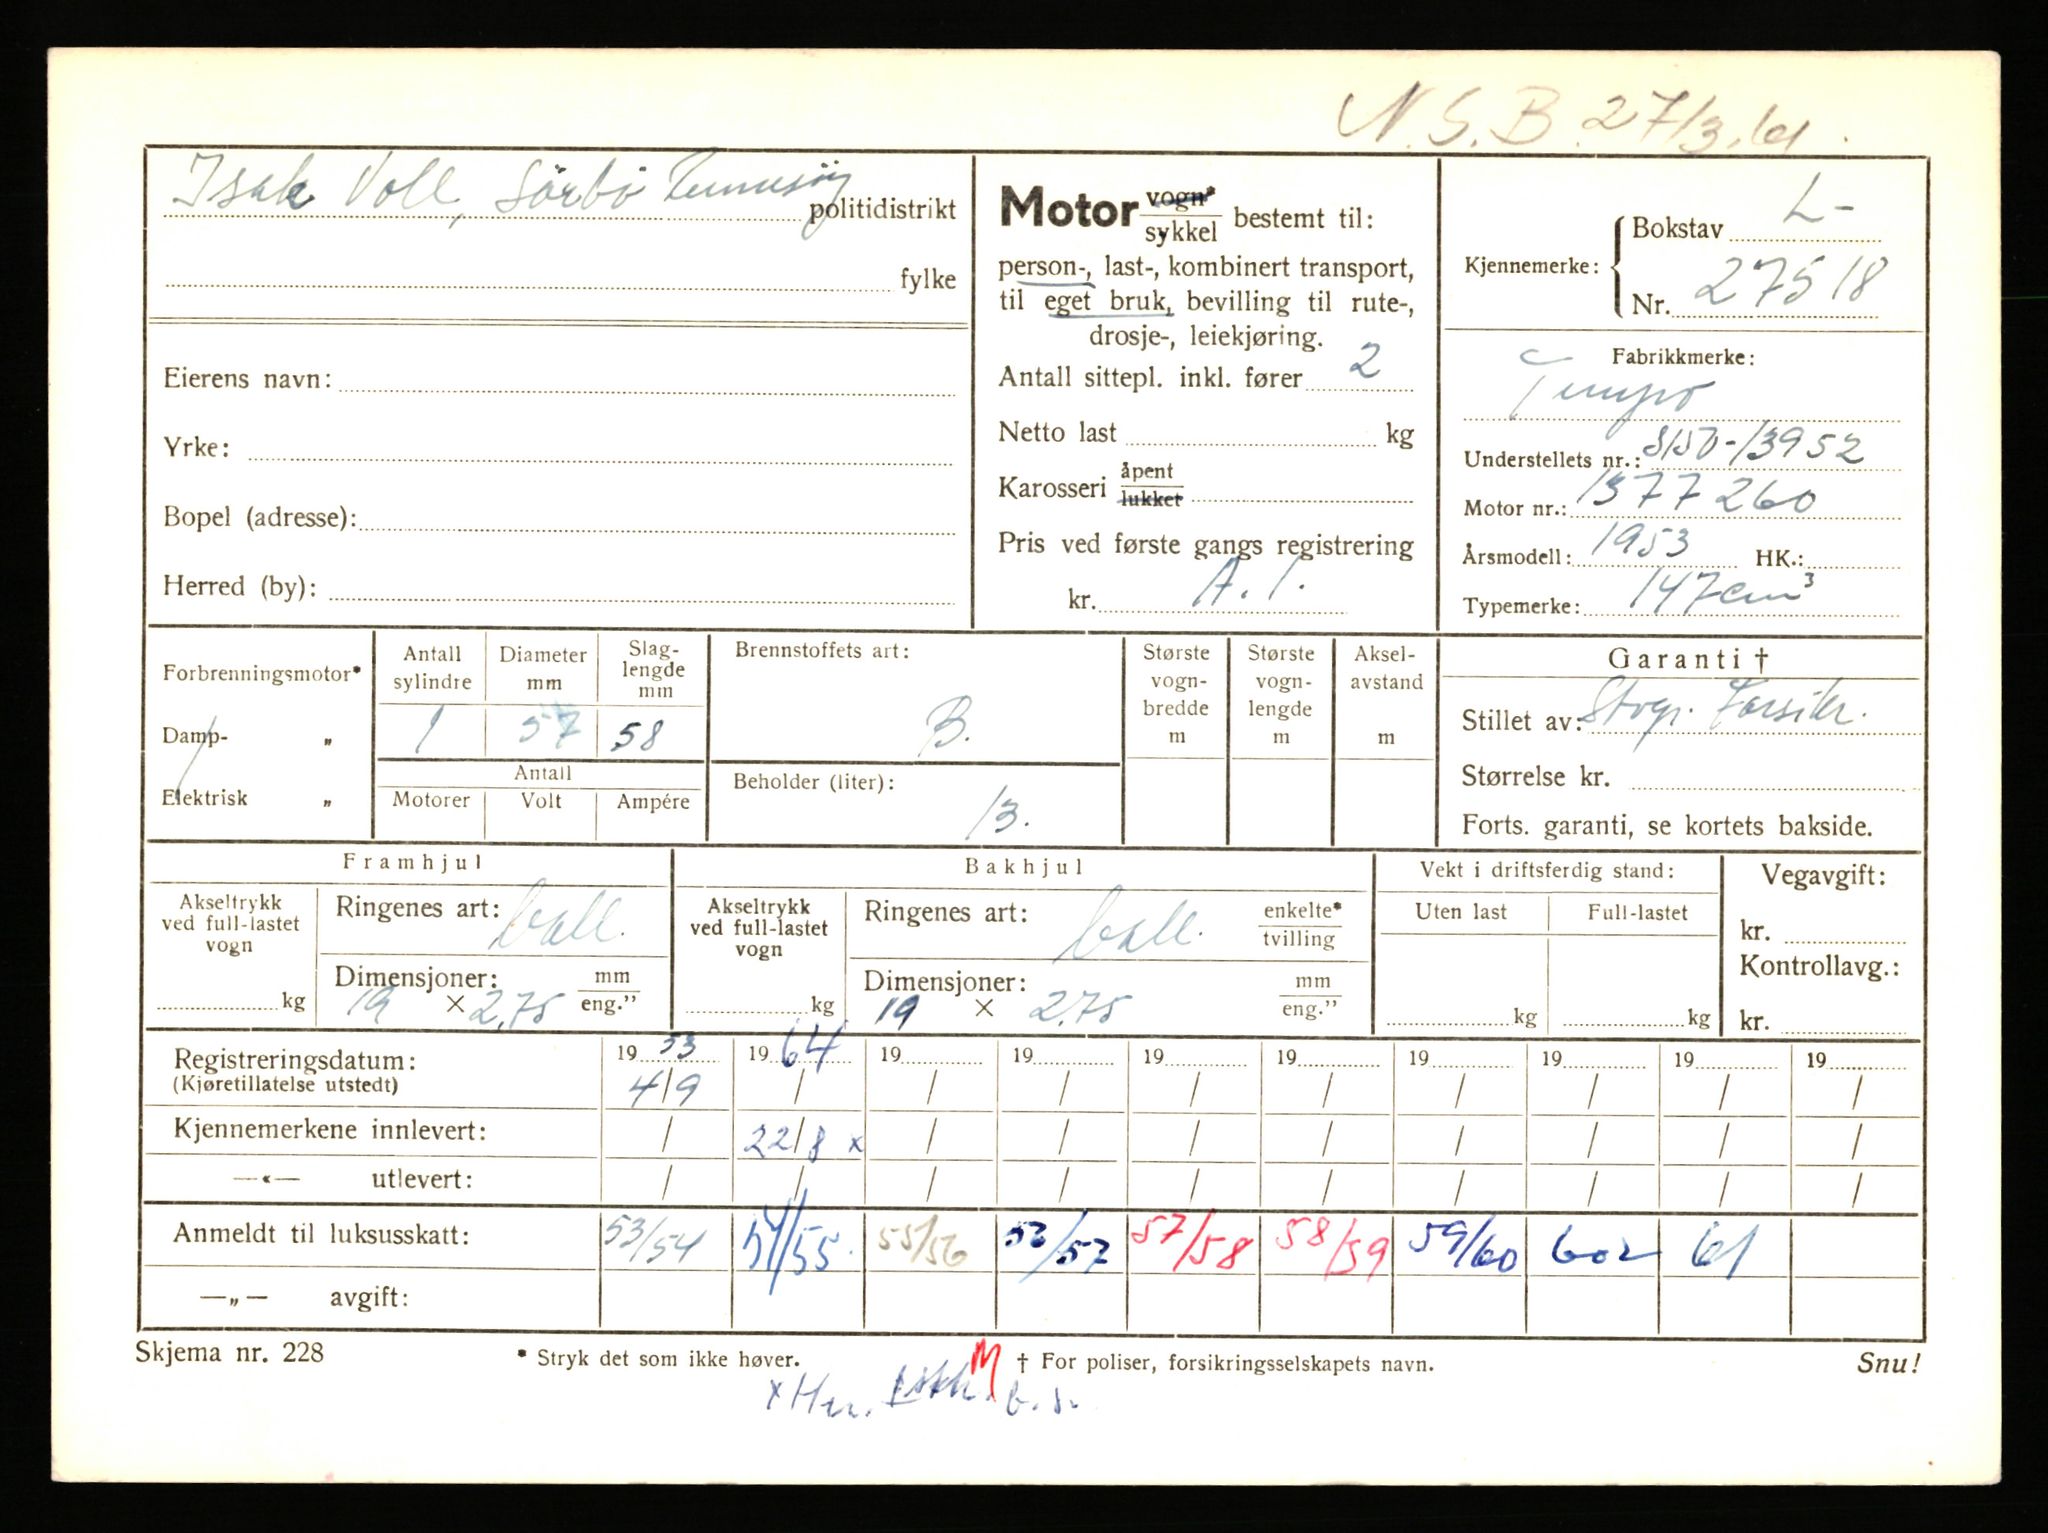 N.S.B. 27/3.61.
Isak Voll, Sørbø Rennesøy politidistrikt
fylke
Eierens navn:
Yrke:
Bopel (adresse):
Herred (by):
Motor vogn* sykkel bestemt til:
person-, last-, kombinert transport,
til eget bruk, bevilling til rute-,
drosje-, leiekjøring.
Antall sittepl. inkl. fører 2
Netto last kg
Karosseri åpent lukket
Pris ved første gangs registrering
kr. A.I.
Kjennemerke: Bokstav L-
Nr. 27518
Fabrikkmerke:
Tempo
Understellets nr.: S150-13952
Motor nr.: 1377260
Årsmodell: 1953 HK.:
Typemerke: 147cm³
Forbrenningsmotor*
Damp- „
Elektrisk „
Antall sylindre Diameter mm Slag-lengde mm
1 57 58
Antall
Motorer Volt Ampére
Brennstoffets art:
B.
Beholder (liter):
13.
Største vogn-bredde m
Største vogn-lengde m
Aksel-avstand m
Garanti †
Stillet av: Stvgr. Forsikr.
Størrelse kr.
Forts. garanti, se kortets bakside.
Framhjul
Akseltrykk ved full-lastet vogn
kg
Ringenes art: ball.
Dimensjoner: mm eng.”
19 × 2,75
Bakhjul
Akseltrykk ved full-lastet vogn
kg
Ringenes art: ball. enkelte* tvilling
Dimensjoner: mm eng.”
19 × 2,75
Vekt i driftsferdig stand:
Uten last Full-lastet
kg kg
Vegavgift:
kr.
Kontrollavg.:
kr.
Registreringsdatum: 19 53 19 64 19 19 19 19 19 19 19 19
(Kjøretillatelse utstedt) 4/9 / / / / / / / / /
Kjennemerkene innlevert: / 22/8 x / / / / / / / /
—«— utlevert: / / / / / / / / / /
Anmeldt til luksusskatt: 53/54 54/55. 55/56 56/57 57/58 58/59 59/60 602 61
—„— avgift:
Skjema nr. 228 * Stryk det som ikke høver. † For poliser, forsikringsselskapets navn. Snu!
M